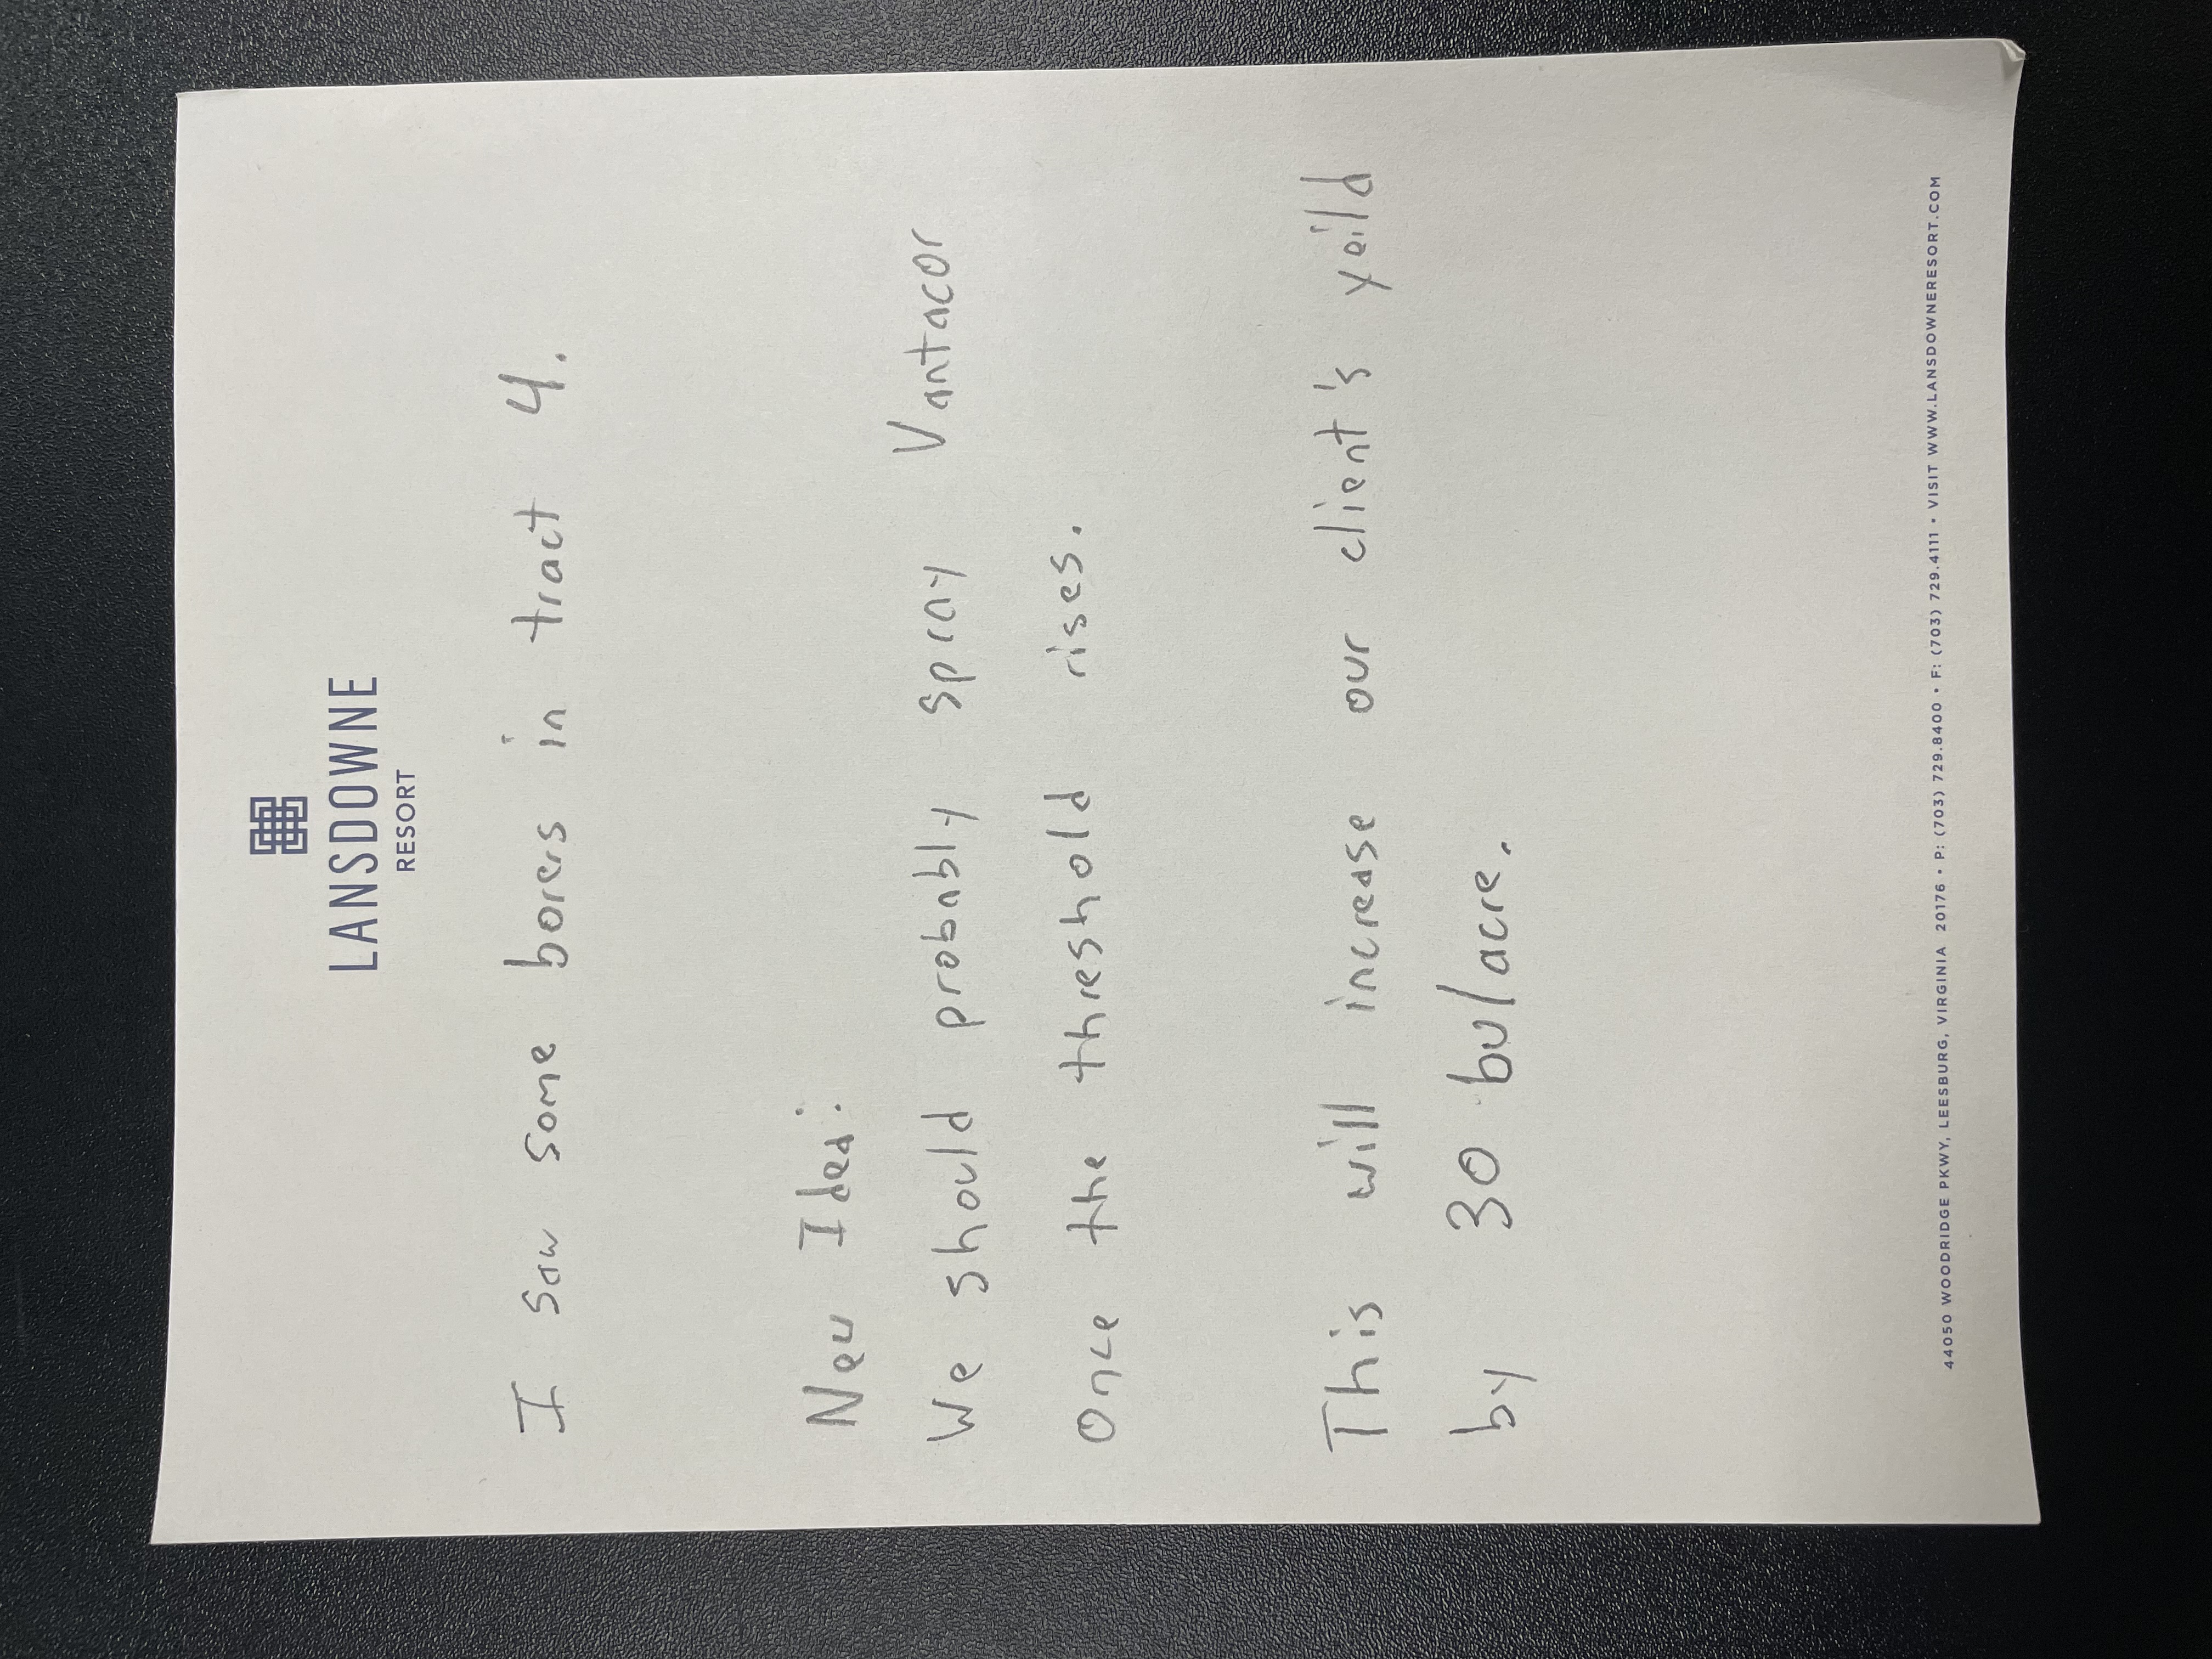 LANSDOWNE
RESORT
I saw some borers in tract 4.
New Idea:
We should probably spray Vantacor
Once the threshold rises.
This will increase our client's yeild
by 30 bu/acre.
44050 WOODRIDGE PKWY, LEESBURG, VIRGINIA 20176 • P: (703) 729.8400 • F: (703) 729.4111 • VISIT WWW.LANSDOWNERESORT.COM